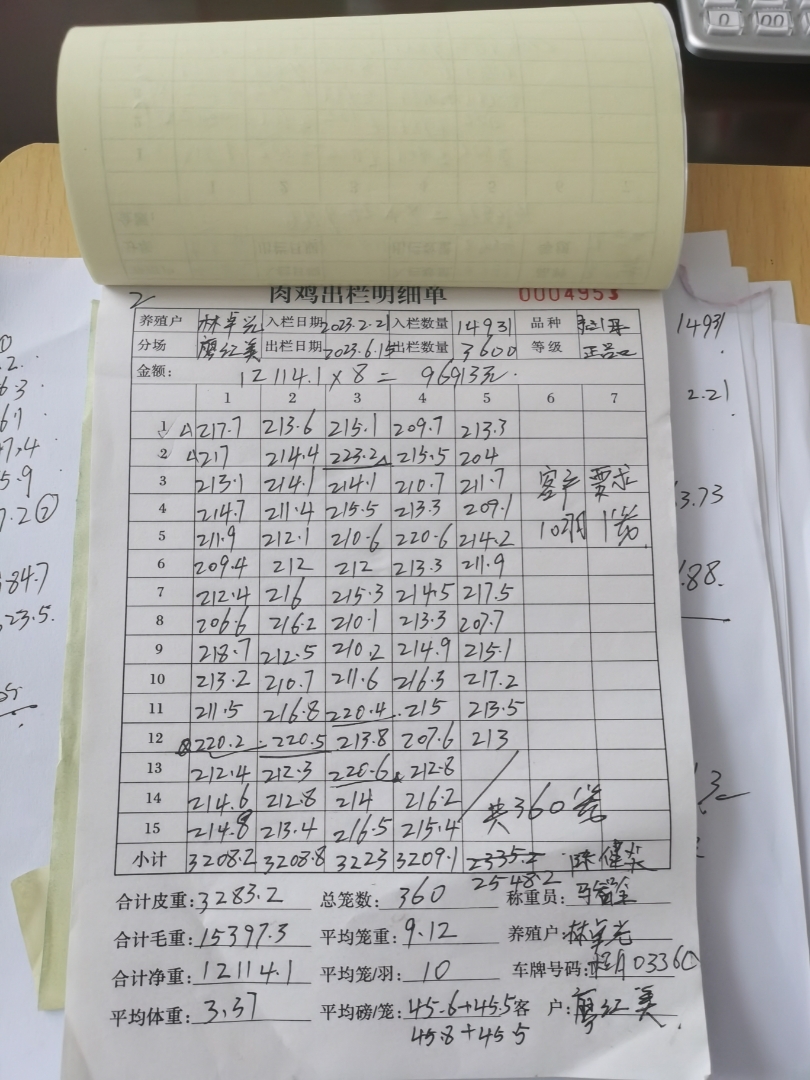 2
肉鸡出栏明细单 0004953
养殖户 林卓光 入栏日期 2023.2.21 入栏数量 14931 品种
分场 廖红美 出栏日期 2023.6.15 出栏数量 3600 等级 正品
金额: 12114.1×8=96913元.
1 2 3 4 5 6 7
1 217.7 213.6 215.1 209.7 213.3
2 217 214.4 223.2 215.5 204
3 213.1 214.1 214.1 210.7 211.7 客户要求
4 214.7 211.4 215.5 213.3 209.1
5 211.9 212.1 210.6 220.6 214.2 10羽1笼
6 209.4 212 212 213.3 211.9
7 212.4 216 215.3 214.5 217.5
8 206.6 216.2 210.1 213.3 207.7
9 218.7 212.5 210.2 214.9 215.1
10 213.2 210.7 211.6 216.3 217.2
11 211.5 216.8 220.4 215 213.5
12 220.2 220.5 213.8 207.6 213
13 212.4 212.3 220.6 212.8
14 214.6 212.8 214 216.2 共360笼
15 214.8 213.4 216.5 215.4
小计 3208.2 3208.8 3223 3209.1 2335.2
2548.2
合计皮重: 3283.2 总笼数: 360 称重员:
合计毛重: 15397.3 平均笼重: 9.12 养殖户: 林卓光
合计净重: 12114.1 平均笼/羽: 10 车牌号码: 03360
平均体重: 3.37 平均磅/笼: 45.6+45.5 客 户: 廖红美
45.8+45.5
14931
2.21
3.73
.88
84.7
23.5